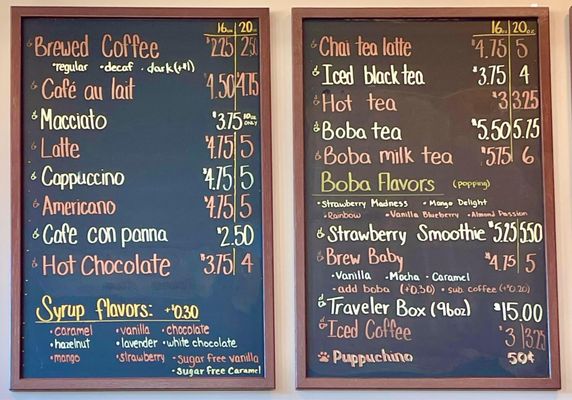 16oz 20oz
Brewed Coffee $2.25 2.50
•regular •decaf •dark(+$1)
Café au lait $4.50 $4.75
Macciato $3.75 10oz ONLY
Latte $4.75 5
Cappuccino $4.75 5
Americano $4.75 5
Cafe con panna $2.50
Hot Chocolate $3.75 4
Syrup flavors: +$0.30
•caramel •vanilla •chocolate
•hazelnut •lavender •white chocolate
•mango •strawberry -Sugar free vanilla
-Sugar Free Caramel
16oz 20oz
Chai tea latte $4.75 5
Iced black tea $3.75 4
Hot tea $3 3.25
Boba tea $5.50 5.75
Boba milk tea $5.75 6
Boba Flavors (popping)
•Strawberry Madness •Mango Delight
•Rainbow •Vanilla Blueberry •Almond Passion
Strawberry Smoothie $5.25 5.50
Brew Baby $4.75 5
-Vanilla -Mocha -Caramel
-add boba (+0.30) •sub coffee (+0.20)
Traveler Box (96oz) $15.00
Iced Coffee $3 3.25
Puppuchino 50¢